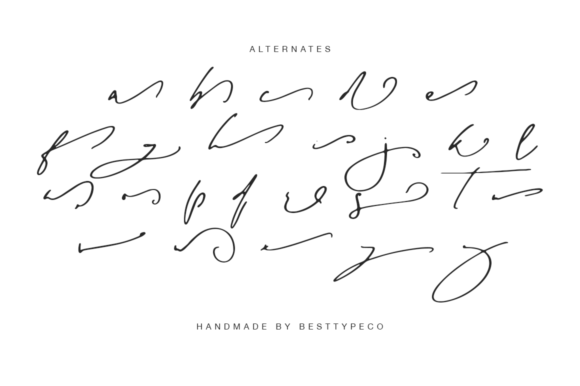 ALTERNATES
a b c d e
f g h i j k l
m n o p q r s t u
v w x y z
HANDMADE BY BESTTYPECO